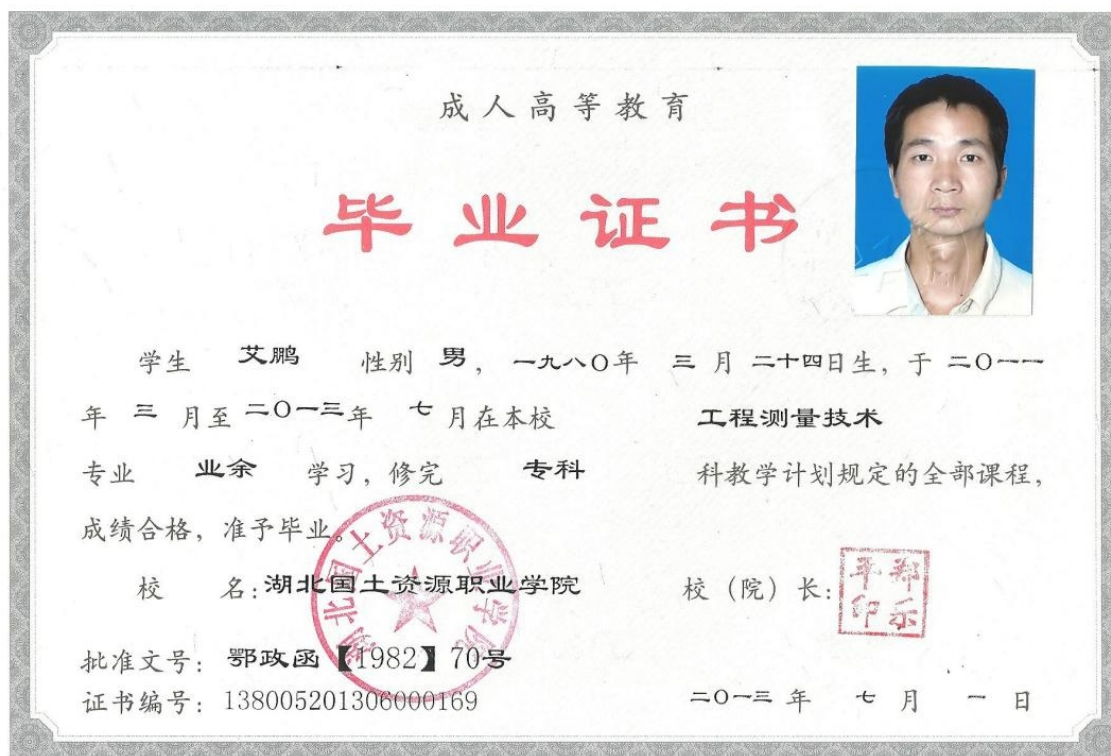 成人高等教育
毕业证书
学生 艾鹏 性别 男，一九八〇年 三 月 二十四日生，于 二〇一一
年 三 月至 二〇一三年 七 月在本校 工程测量技术
专业 业余 学习，修完 专科 科教学计划规定的全部课程，
成绩合格，准予毕业。
校 名：湖北国土资源职业学院 校（院）长：
湖北国土资源职业学院
批准文号：鄂政函【1982】70号
证书编号：138005201306000169 二〇一三 年 七 月 一 日